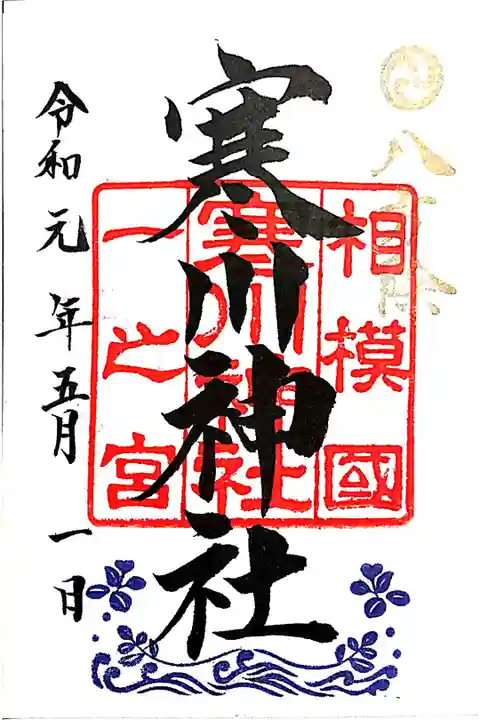 八方除
相模國
寒川神社
一之宮
寒川神社
令和元年五月一日